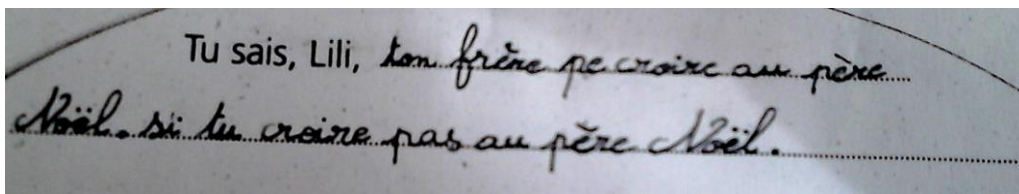 Tu sais, Lili, ton frère pe croire au père
Noël. si tu croire pas au père Noël.